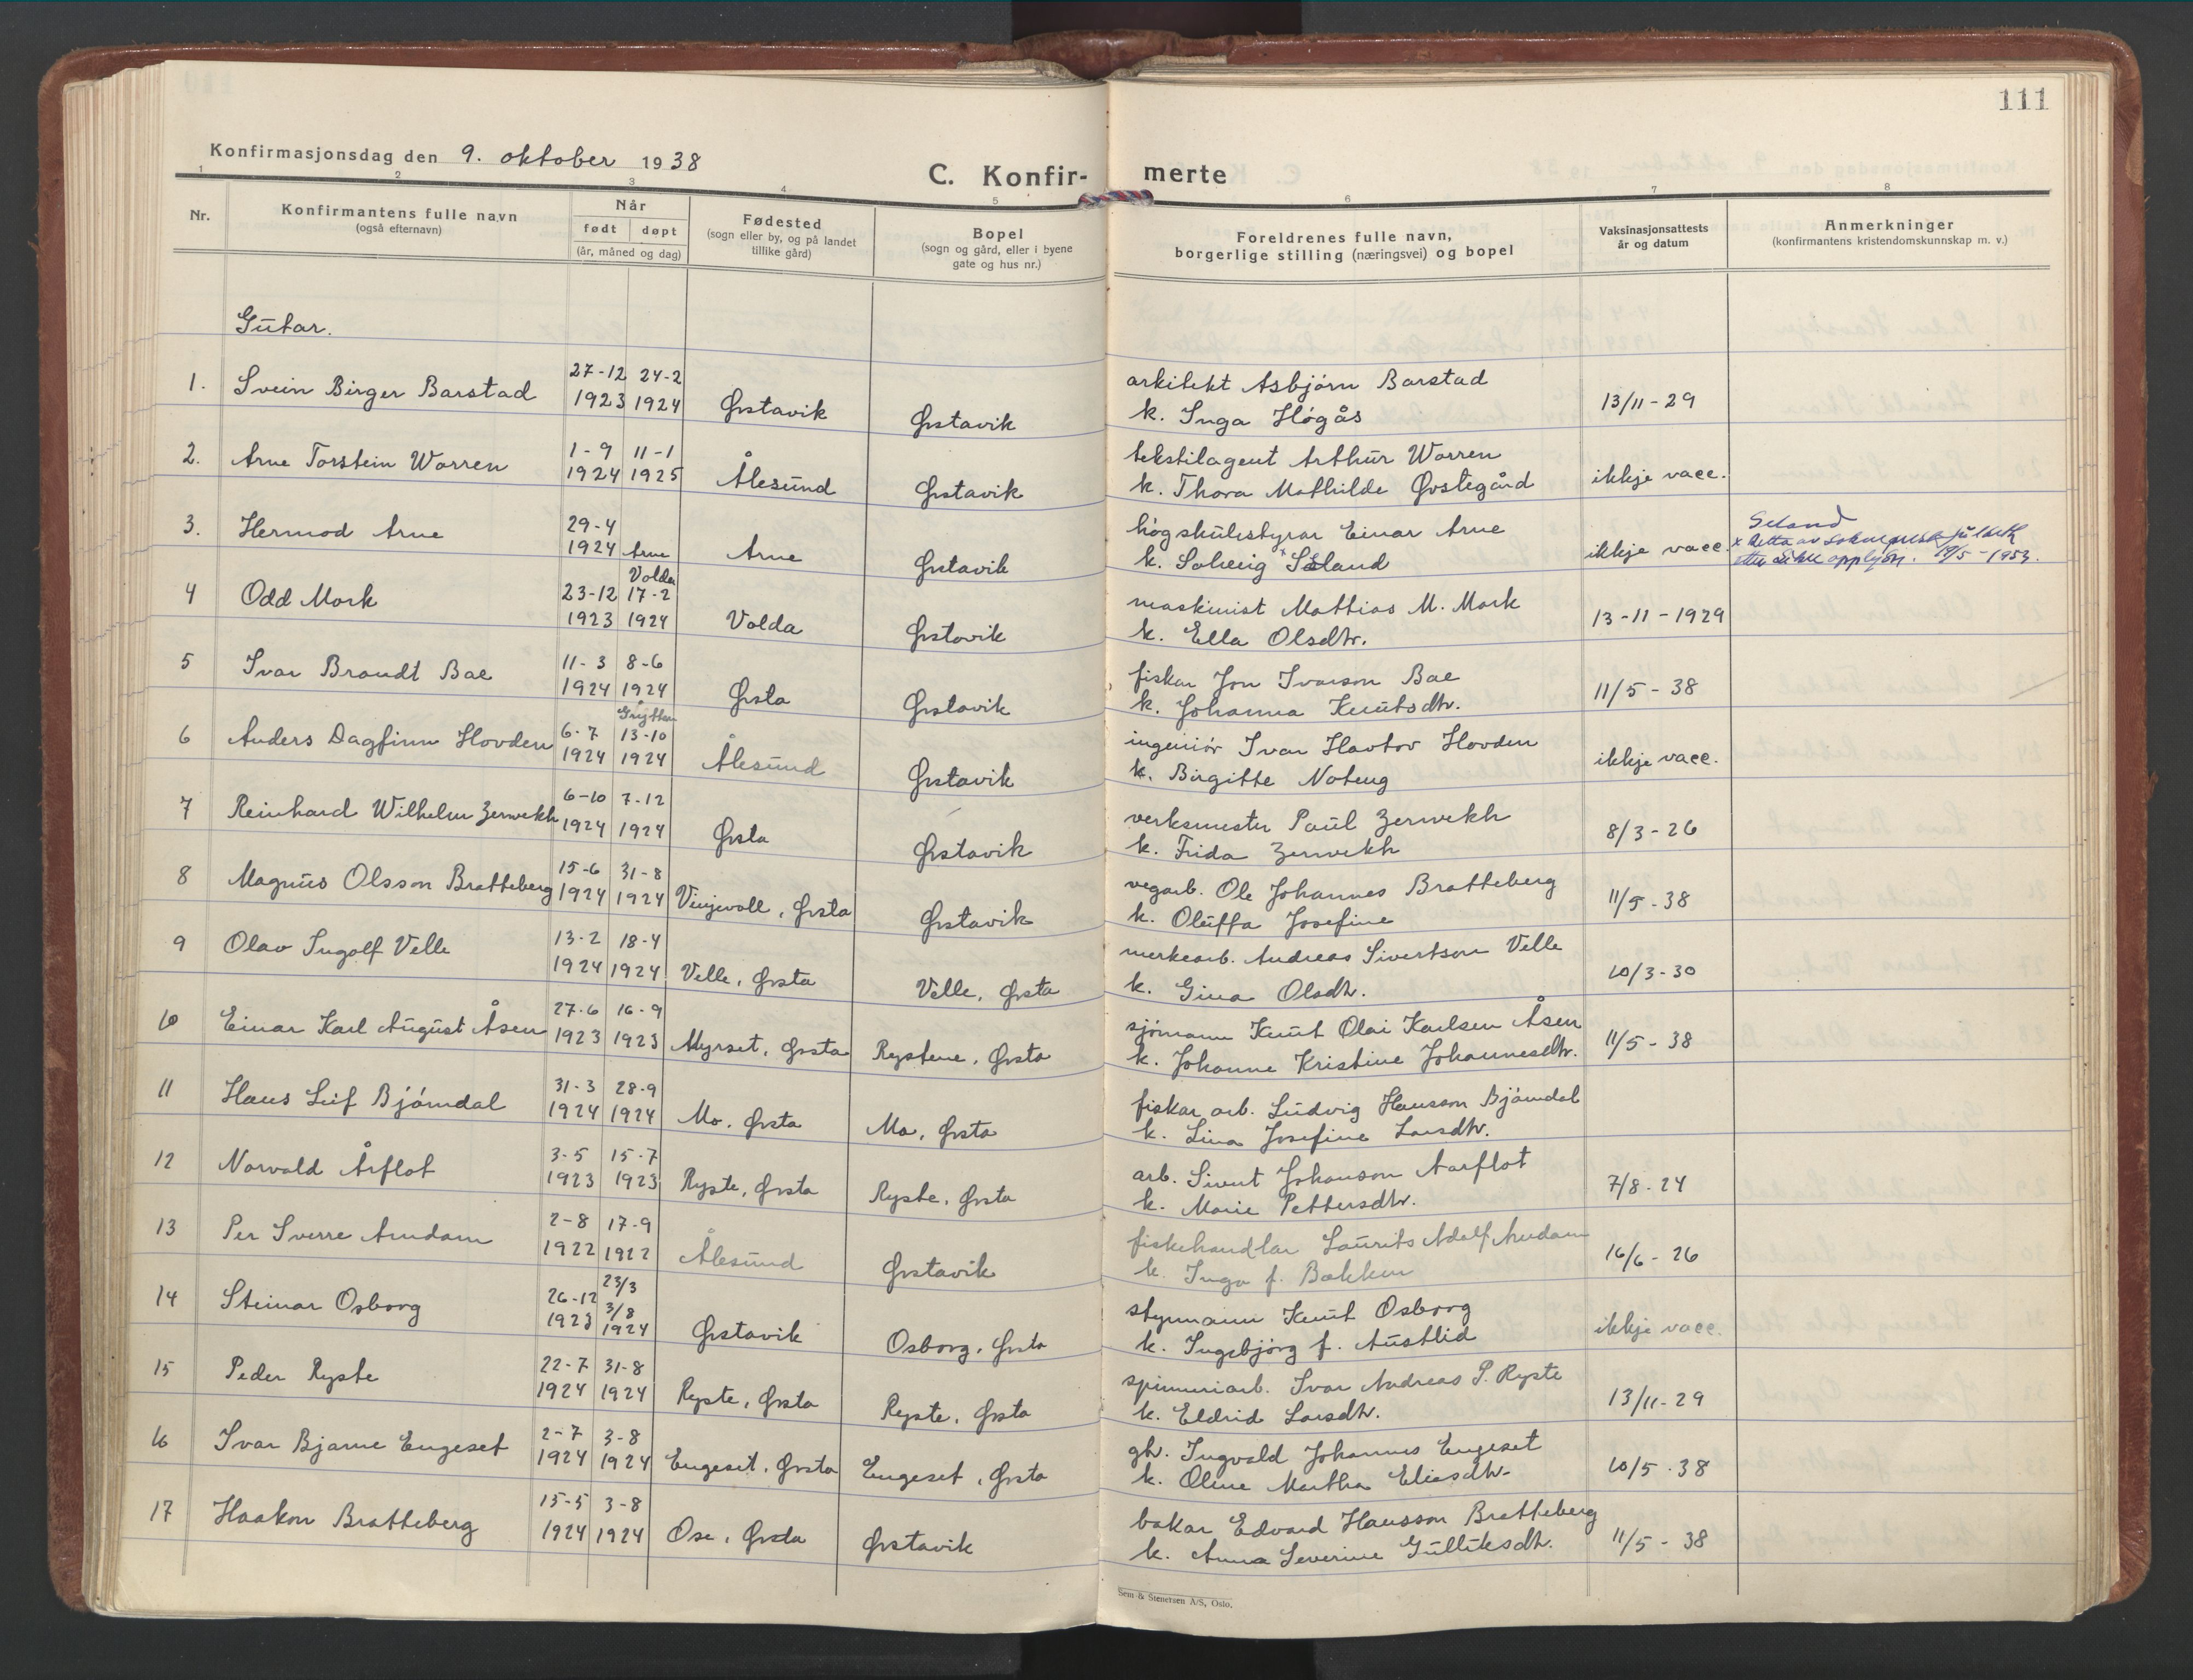 111
Konfirmasjonsdag den 9. oktober 1938
C. Konfir- merte
1 2 3 4 5 6 7 8
Nr. Konfirmantens fulle navn (også efternavn) Når født døpt (år, måned og dag) Fødested (sogn eller by, og på landet tillike gård) Bopel (sogn og gård, eller i byene gate og hus nr.) Foreldrenes fulle navn, borgerlige stilling (næringsvei) og bopel Vaksinasjonsattests år og datum Anmerkninger (konfirmantens kristendomskunnskap m. v.)
Gutar.
27-12 24-2 arkitekt Asbjörn Barstad
1. Svein Birger Barstad 1923 1924 Ørstavik Ørstavik k. Inga Högås 13/11-29
1-9 11-1 tekstilagent Arthur Warren
2. Arne Torstein Warren 1924 1925 Ålesund Ørstavik k. Thora Mathilde Ørstegård ikkje vacc.
29-4 högskulestyrar Einar Arne Seland
3. Hermod Arne 1924 Arne Arne Ørstavik k. Solveig x Seland ikkje vacc. x Retta av
19/5-1953.
Volda
23-12 17-2 maskinist Mathias M. Mork
4 Odd Mork 1923 1924 Volda Ørstavik k. Ella Olsdtr. 13-11-1929
11-3 8-6 fiskar Jon Ivarson Bae
5 Ivar Brandt Bae 1924 1924 Ørsta Ørstavik k. Johanna Knutsdtr. 11/5-38
Grytten
6-7 13-10 ingeniör Ivar Havtor Hovden
6 Anders Dagfinn Hovden 1924 1924 Ålesund Ørstavik k. Birgitte Noteng ikkje vacc.
6-10 7-12 verksmester Paul Zerwekh
7 Reinhard Wilhelm Zerwekh 1924 1924 Ørsta Ørstavik k. Frida Zerwekh 8/3-26
15-6 31-8 vegarb. Ole Johannes Bratteberg
8 Magnus Olsson Bratteberg 1924 1924 Vinjevoll, Ørsta Ørstavik k. Oluffa Josefine 11/5-38
13-2 18-4 merkearb. Andreas Sivertson Velle
9 Olav Ingolf Velle 1924 1924 Velle, Ørsta Velle, Ørsta k. Gina Olsdtr. 10/3-30
27-6 16-9 sjömann Knut Olai Karlsen Åsen
10 Einar Karl August Åsen 1923 1923 Myrset, Ørsta Rystene, Ørsta k. Johanne Kristine Johannesdtr. 11/5-38
31-3 28-9 fiskar arb. Ludvig Hansson Björndal
11 Hans Leif Björndal 1924 1924 Mo, Ørsta Mo, Ørsta k. Lina Josefine Larsdtr.
3-5 15-7 arb. Sivert Johanson Aarflot
12 Norvald Årflot 1923 1923 Ryste, Ørsta Ryste, Ørsta k. Marie Pettersdtr. 7/8-24
2-8 17-9 fiskehandlar Laurits Adolf Amdam
13 Per Sverre Amdam 1922 1922 Ålesund Ørstavik k. Inga f. Bakken 16/6-26
23/3
26-12 3/8 styrmann Knut Osborg
14 Steinar Osborg 1923 1924 Ørstavik Osborg, Ørsta k. Ingebjörg f. Austlid ikkje vacc.
22-7 31-8 spinneriarb. Ivar Andreas P. Ryste
15 Peder Ryste 1924 1924 Ryste, Ørsta Ryste, Ørsta k. Eldrid Larsdtr. 13/11-29
2-7 3-8 gbr. Ingvald Johannes Engeset
16 Ivar Bjarne Engeset 1924 1924 Engeset, Ørsta Engeset, Ørsta k. Oline Martha Eliasdtr. 10/5-38
15-5 3-8 bakar Edvard Hansson Bratteberg
17 Haakon Bratteberg 1924 1924 Ose, Ørsta Ørstavik k. Anna Severine Gulliksdtr. 11/5-38
Sem & Stenersen A/S, Oslo.